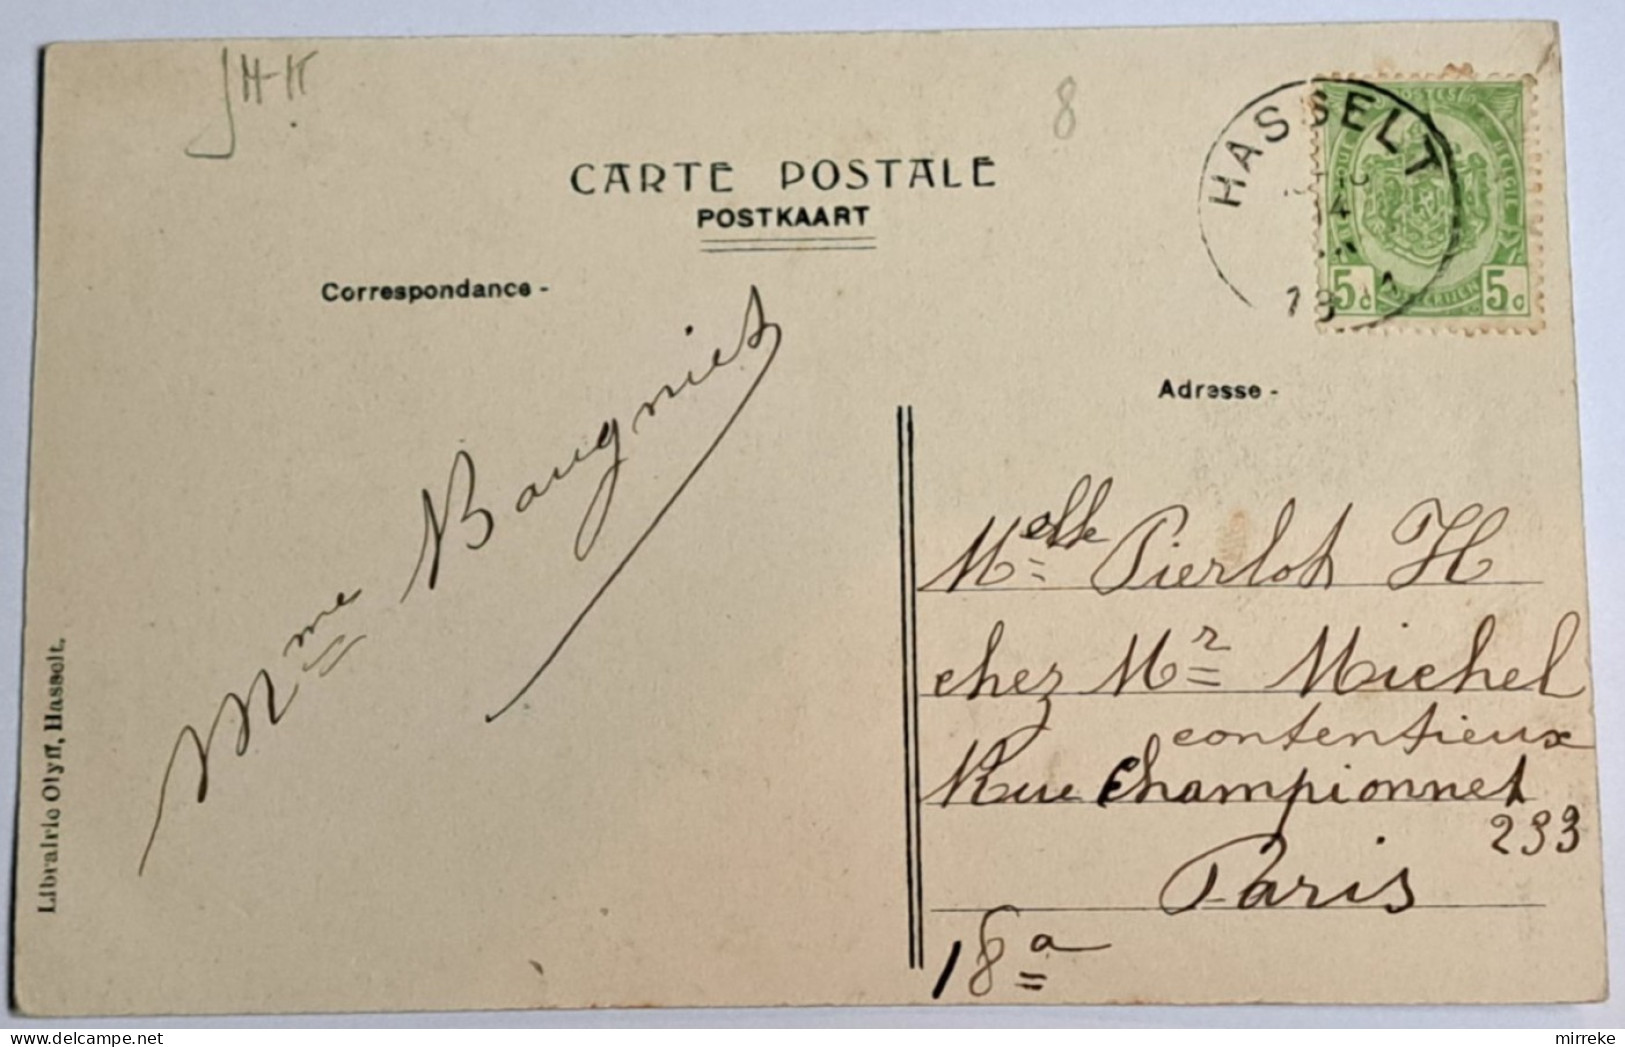 JH-K
8
CARTE POSTALE
POSTKAART
Correspondance -
HASSELT
14
18
5c 5c
Adresse -
Mme Baugniet
Melle Pierlot H
chez Mr Michel
contentieux
Rue Championnet
233
Paris
18a
Librairie Olyff, Hasselt.
mirreke